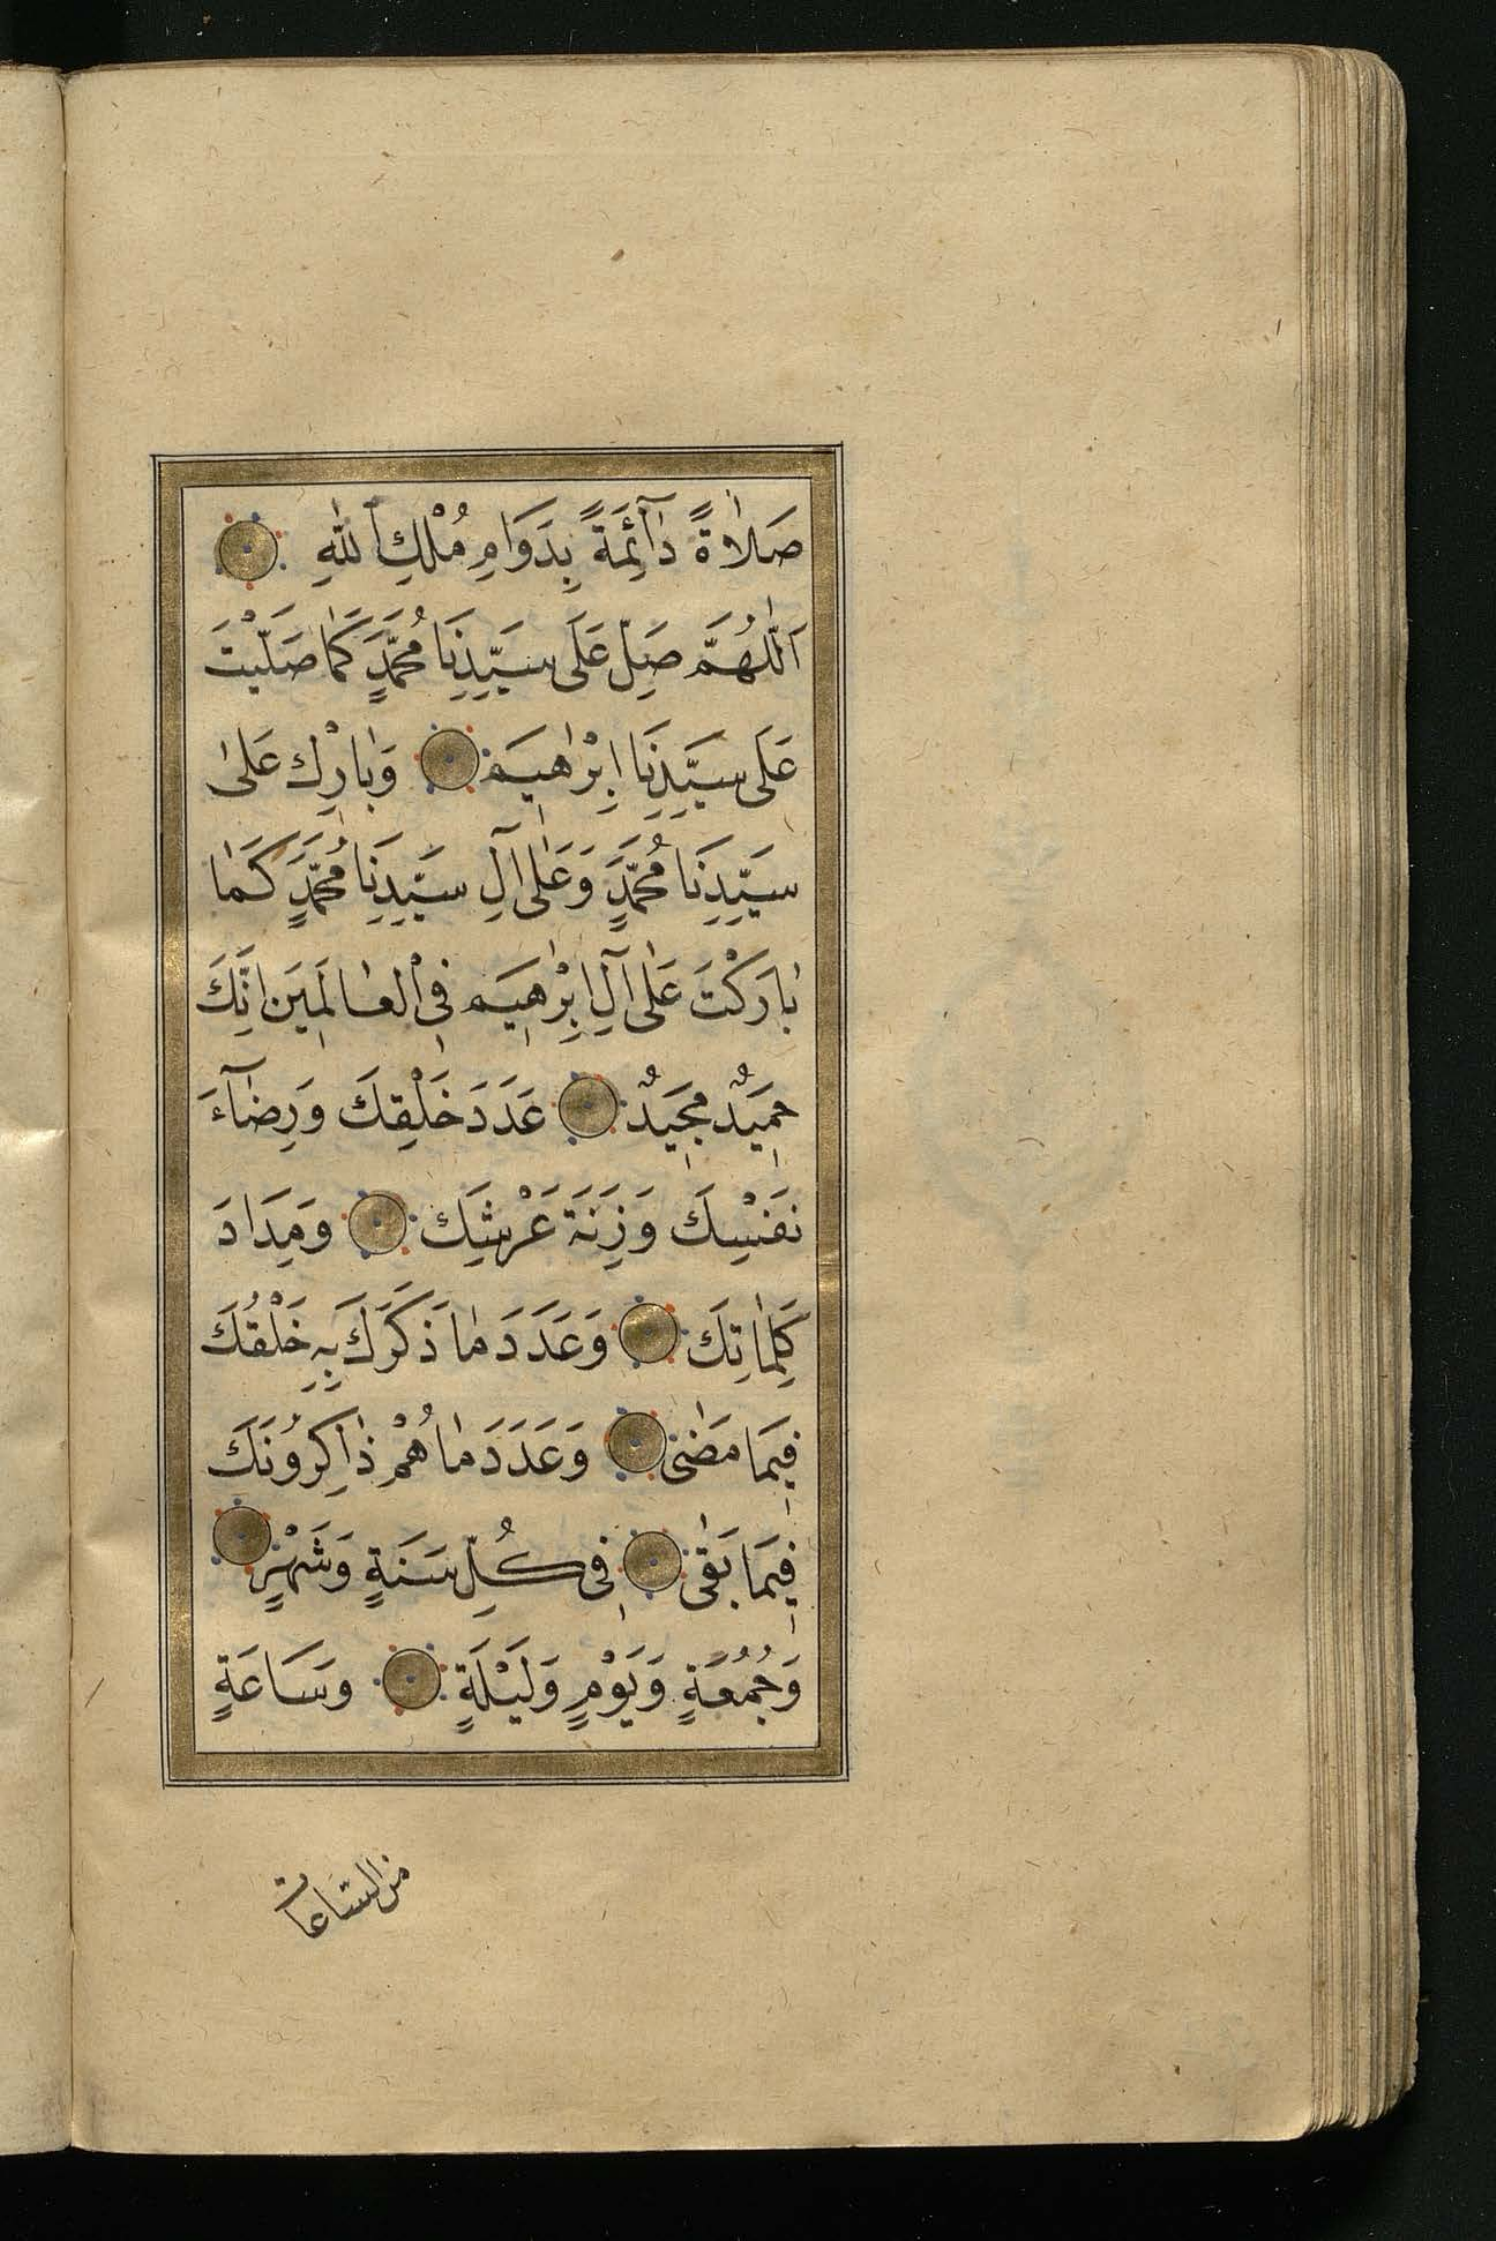 صَلٰاةً دٰآئِمَةً بِدَوَامِ مُلْكِ اللّٰهِ
اَللّٰهُمَّ صَلِّ عَلَى سَيِّدِنَا مُحَمَّدٍ كَمٰا صَلَّيْتَ
عَلَى سَيِّدِنَا اِبْرٰاهِيمَ وَبٰارِكْ عَلىٰ
سَيِّدِنَا مُحَمَّدٍ وَعَلٰى اٰلِ سَيِّدِنَا مُحَمَّدٍ كَمٰا
بٰارَكْتَ عَلٰى اٰلِ اِبْرٰاهِيمَ فِى الْعٰالَمِينَ اِنَّكَ
حَمِيدٌ مَجِيدٌ عَدَدَ خَلْقِكَ وَرِضٰآءَ
نَفْسِكَ وَزِنَةَ عَرْشِكَ وَمِدَادَ
كَلِمٰاتِكَ وَعَدَدَ مٰا ذَكَرَكَ بِهِ خَلْقُكَ
فِيمَا مَضٰى وَعَدَدَ مٰا هُمْ ذٰاكِرُونَكَ
فِيمَا بَقٰى فِى كُلِّ سَنَةٍ وَشَهْرٍ
وَجُمُعَةٍ وَيَوْمٍ وَلَيْلَةٍ وَسَاعَةٍ
من الساعات